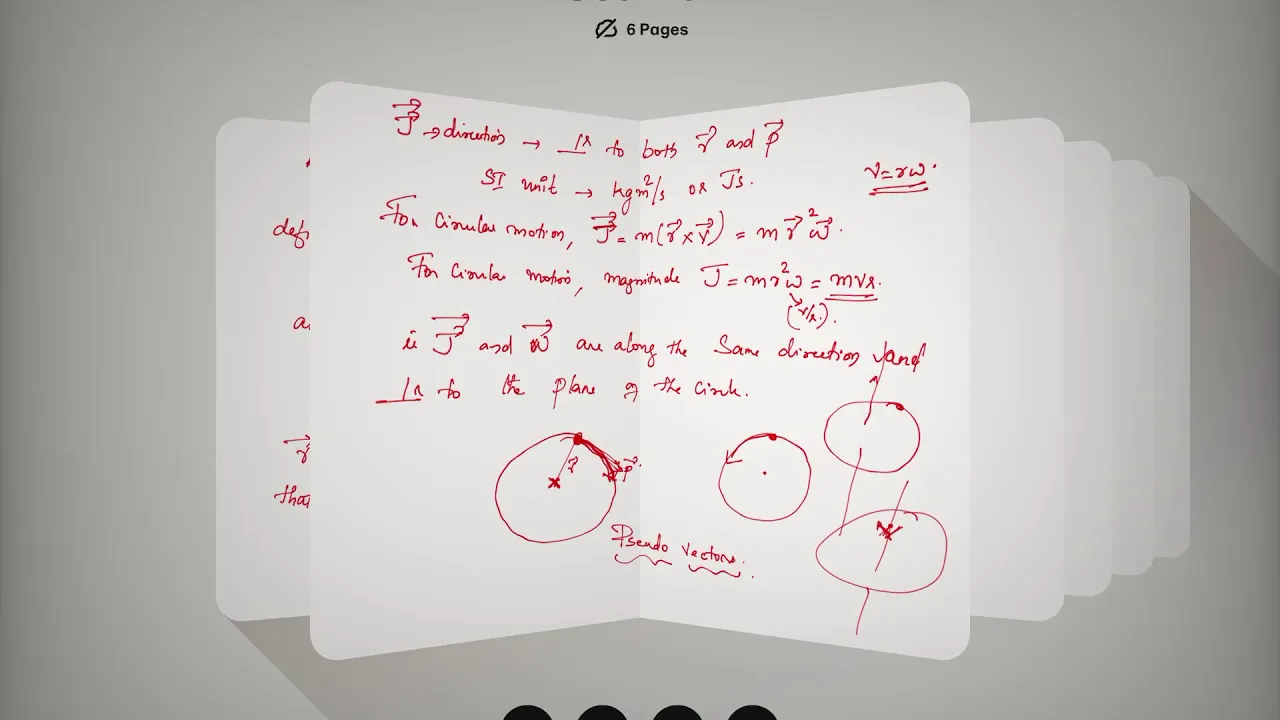 6 Pages
J⃗ → direction → ⊥r to both r⃗ and p⃗
SI unit → kgm²/s or Js.
v = rω.
For Circular motion, J⃗ = m(r⃗ × v⃗) = m r⃗² ω⃗.
For Circular motion, magnitude J = mr²ω = mvr.
(v/r).
ie J⃗ and ω⃗ are along the same direction and
⊥r to the plane of the Circle.
r⃗ p⃗.
Pseudo vectors.
defi
a
r⃗
that